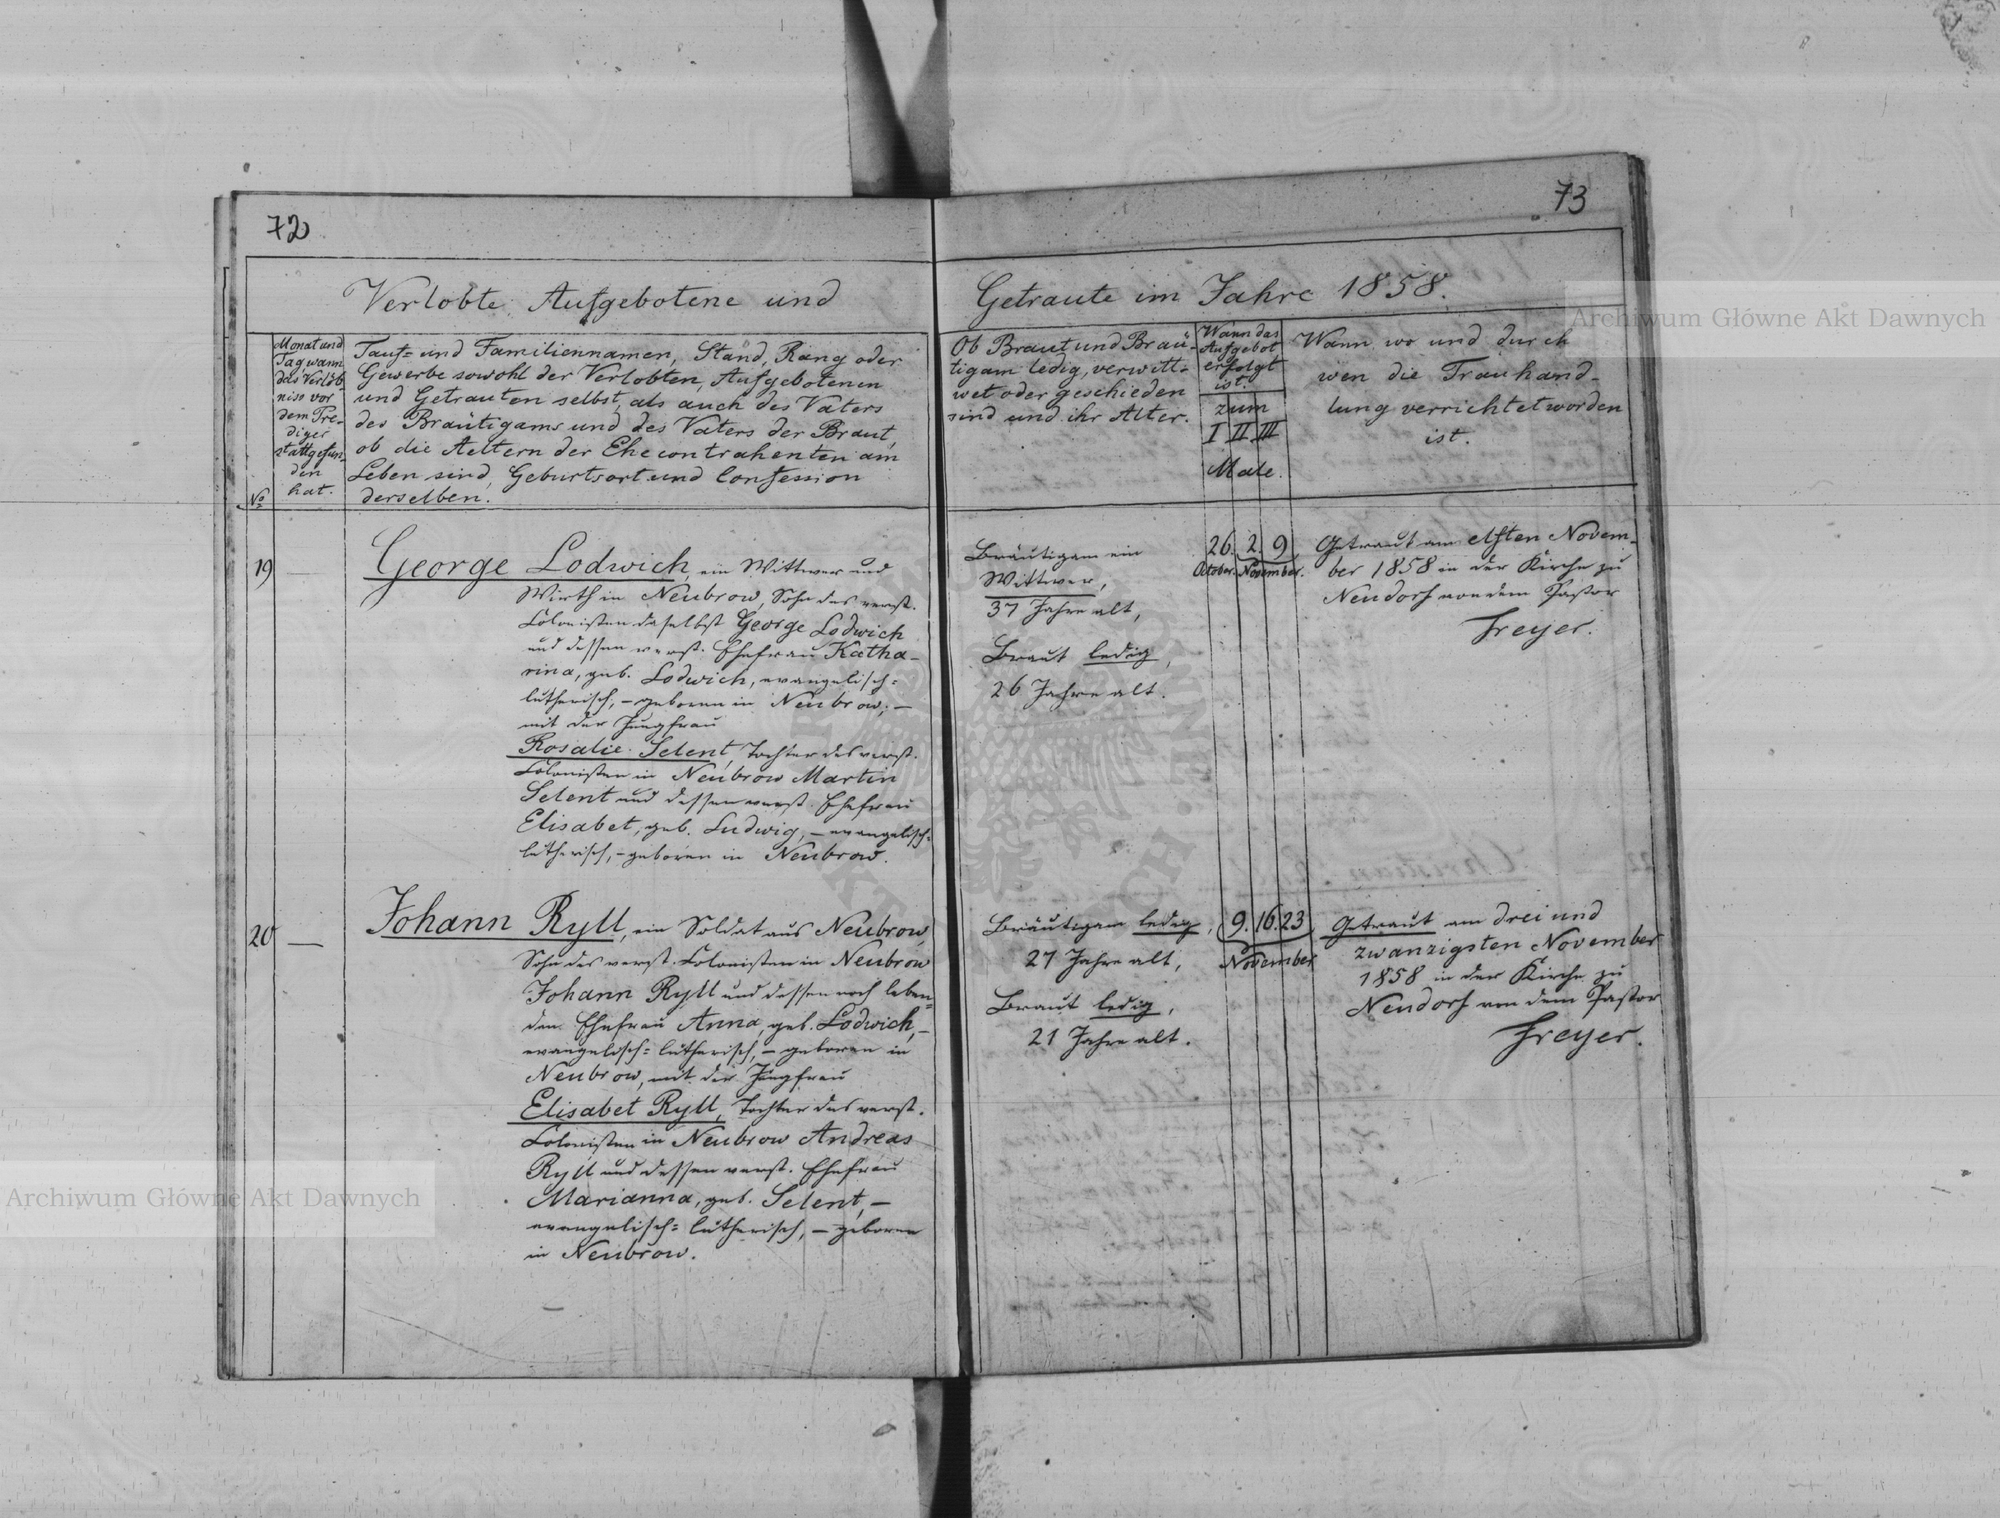 72
Verlobte, Aufgebotene und
No
Monat und
Tag, wann
das Verlöb-
niss vor
dem Pre-
diger
stattgefun-
den
hat.
Tauf= und Familiennamen, Stand, Rang oder
Gewerbe sowohl der Verlobten, Aufgebotenen
und Getrauten selbst, als auch des Vaters
des Bräutigams und des Vaters der Braut,
ob die Aeltern der Ehecontrahenten am
Leben sind, Geburtsort und Confession
derselben.
19
George Lodwich, ein Wittwer und
Wirth in Neubrow, Sohn des verst.
Colonisten daselbst George Lodwich
und dessen verst. Ehefrau Katha-
rina, geb. Lodwich, evangelisch=
lutherisch, – geboren in Neubrow; –
mit der Jungfrau
Rosalie Selent, Tochter des verst.
Colonisten in Neubrow Martin
Selent und dessen verst. Ehefrau
Elisabet, geb. Ludwig, – evangelisch=
lutherisch, – geboren in Neubrow.
20 —
Johann Ryll, ein Soldat aus Neubrow,
Sohn des verst. Colonisten in Neubrow
Johann Ryll und dessen noch leben=
den Ehefrau Anna, geb. Lodwich, –
evangelisch= lutherisch, – geboren in
Neubrow, mit der Jungfrau
Elisabet Ryll, Tochter des verst.
Colonisten in Neubrow Andreas
Ryll und dessen verst. Ehefrau
Marianna, geb. Selent, –
evangelisch= lutherisch, – geboren
in Neubrow.
73
Getraute im Jahre 1858.
Ob Braut und Bräu-
tigam ledig, verwitt-
wet oder geschieden
sind und ihr Alter.
Wann das
Aufgebot
erfolgt
ist.
zum
I II III
Male.
Wann, wo und durch
wen die Trauhand-
lung verrichtet worden
ist.
Bräutigam ein
Wittwer,
37 Jahre alt,
Braut ledig,
26 Jahre alt.
26. 2. 9
October. November.
Getraut am elften Novem-
ber 1858 in der Kirche zu
Neudorf von dem Pastor
Freyer.
Bräutigam ledig,
27 Jahre alt,
Braut ledig,
21 Jahre alt.
9. 16. 23
November
Getraut am drei und
zwanzigsten November
1858 in der Kirche zu
Neudorf von dem Pastor
Freyer.
Archiwum Główne Akt Dawnych
Archiwum Główne Akt Dawnych